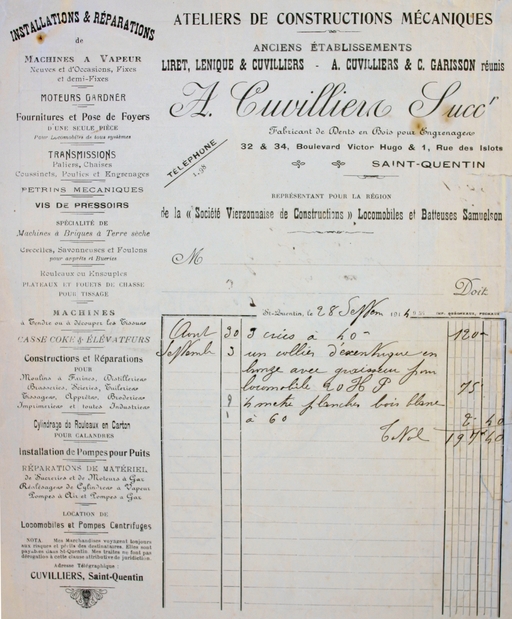 INSTALLATIONS & RÉPARATIONS
de
MACHINES A VAPEUR
Neuves et d'Occasions, Fixes
et demi-Fixes
MOTEURS GARDNER
Fournitures et Pose de Foyers
D'UNE SEULE PIÈCE
Pour Locomobiles de tous systèmes
TRANSMISSIONS
Paliers, Chaises
Coussinets, Poulies et Engrenages
PETRINS MÉCANIQUES
VIS DE PRESSOIRS
SPÉCIALITÉ DE
Machines à Briques à Terre sèche
Crécelles, Savonneuses et Foulons
pour apprêts et Bueries
Rouleaux ou Ensouples
PLATEAUX ET FOUETS DE CHASSE
POUR TISSAGE
MACHINES
à Tendre ou à découper les Tissus
CASSE COKE & ÉLÉVATEURS
Constructions et Réparations
POUR
Moulins à Farines, Distilleries
Brasseries, Scieries, Tuileries
Tissages, Apprêts, Broderies
Imprimeries et toutes Industries
Cylindrage de Rouleaux en Carton
POUR CALANDRES
Installation de Pompes pour Puits
RÉPARATIONS DE MATÉRIEL
de Sucreries et de Moteurs à Gaz
Réalésages de Cylindres à Vapeur
Pompes à Air et Pompes à Gaz
LOCATION DE
Locomobiles et Pompes Centrifuges
NOTA. Mes Marchandises voyagent toujours
aux risques et périls des destinataires. Elles sont
payables dans St-Quentin. Mes traites ne font pas
dérogation à cette clause attributive de juridiction.
Adresse Télégraphique :
CUVILLIERS, Saint-Quentin
ATELIERS DE CONSTRUCTIONS MÉCANIQUES
ANCIENS ÉTABLISSEMENTS
LIRET, LENIQUE & CUVILLIERS - A. CUVILLIERS & C. GARISSON réunis
A. Cuvilliers Succr
Fabricant de Dents en Bois pour Engrenages
TÉLÉPHONE
1.98
32 & 34, Boulevard Victor Hugo & 1, Rue des Islots
SAINT-QUENTIN
REPRÉSENTANT POUR LA RÉGION
de la « Société Vierzonnaise de Constructions » Locomobiles et Batteuses Samuelson
M
Doit
St-Quentin, le 28 Septem 191
Aout 30 3 cries à 40 120
Septembre 3 un collier d'excentrique en
bronze avec graisseur pour
locomobile 20 HP 75
9 4 metre planches bois blanc
à 60 2 40
Total 197 40